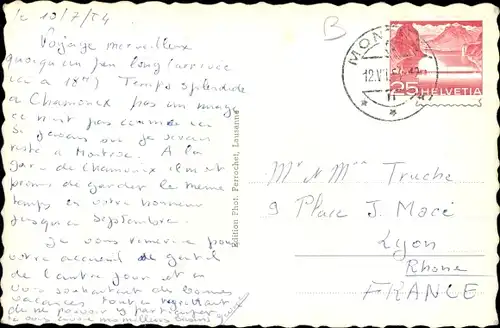 le 10/7/54
Voyage merveilleux
quoiqu'un peu long (arrivée
à 18h) Temps splendide
à Chamonix pas un nuage
ce n'est pas comme ici
Si j'avais su je serais
resté à Montreux. A la
gare de Chamonix ils m'ont
promis de garder le même
temps en votre honneur
jusqu'à Septembre.
Je vous remercie pour
votre accueil de gentil
de l'autre jour et en
vous souhaitant des bonnes
vacances tout en regrettant
de ne pouvoir y participer
je vous envoie mes meilleurs baisers
Edition Phot. Perrochet, Lausanne
B
MONT
12.VII
25 HELVETIA
Mr & Mme Truche
9 Place J. Macé
Lyon
Rhone
FRANCE